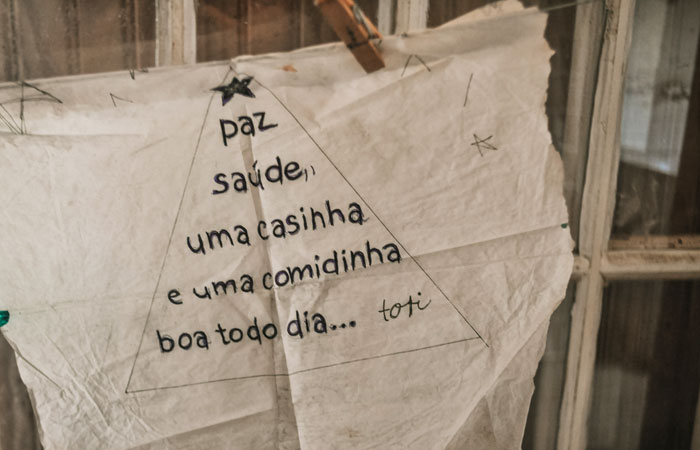 paz
saúde,,
uma casinha
e uma comidinha
boa todo dia... toti